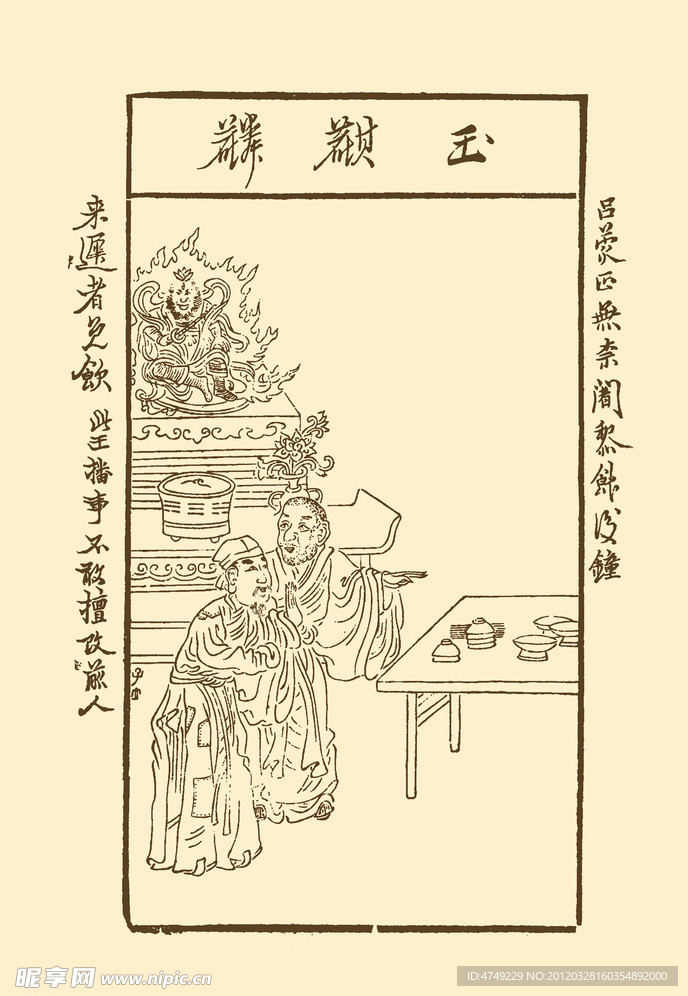 玉麒麟
呂蒙正無柰闍黎飯後鐘
来遲者免飲 此王播事不敢擅改前人
昵享网 www.nipic.cn
ID:4749229 NO:20120328160354892000